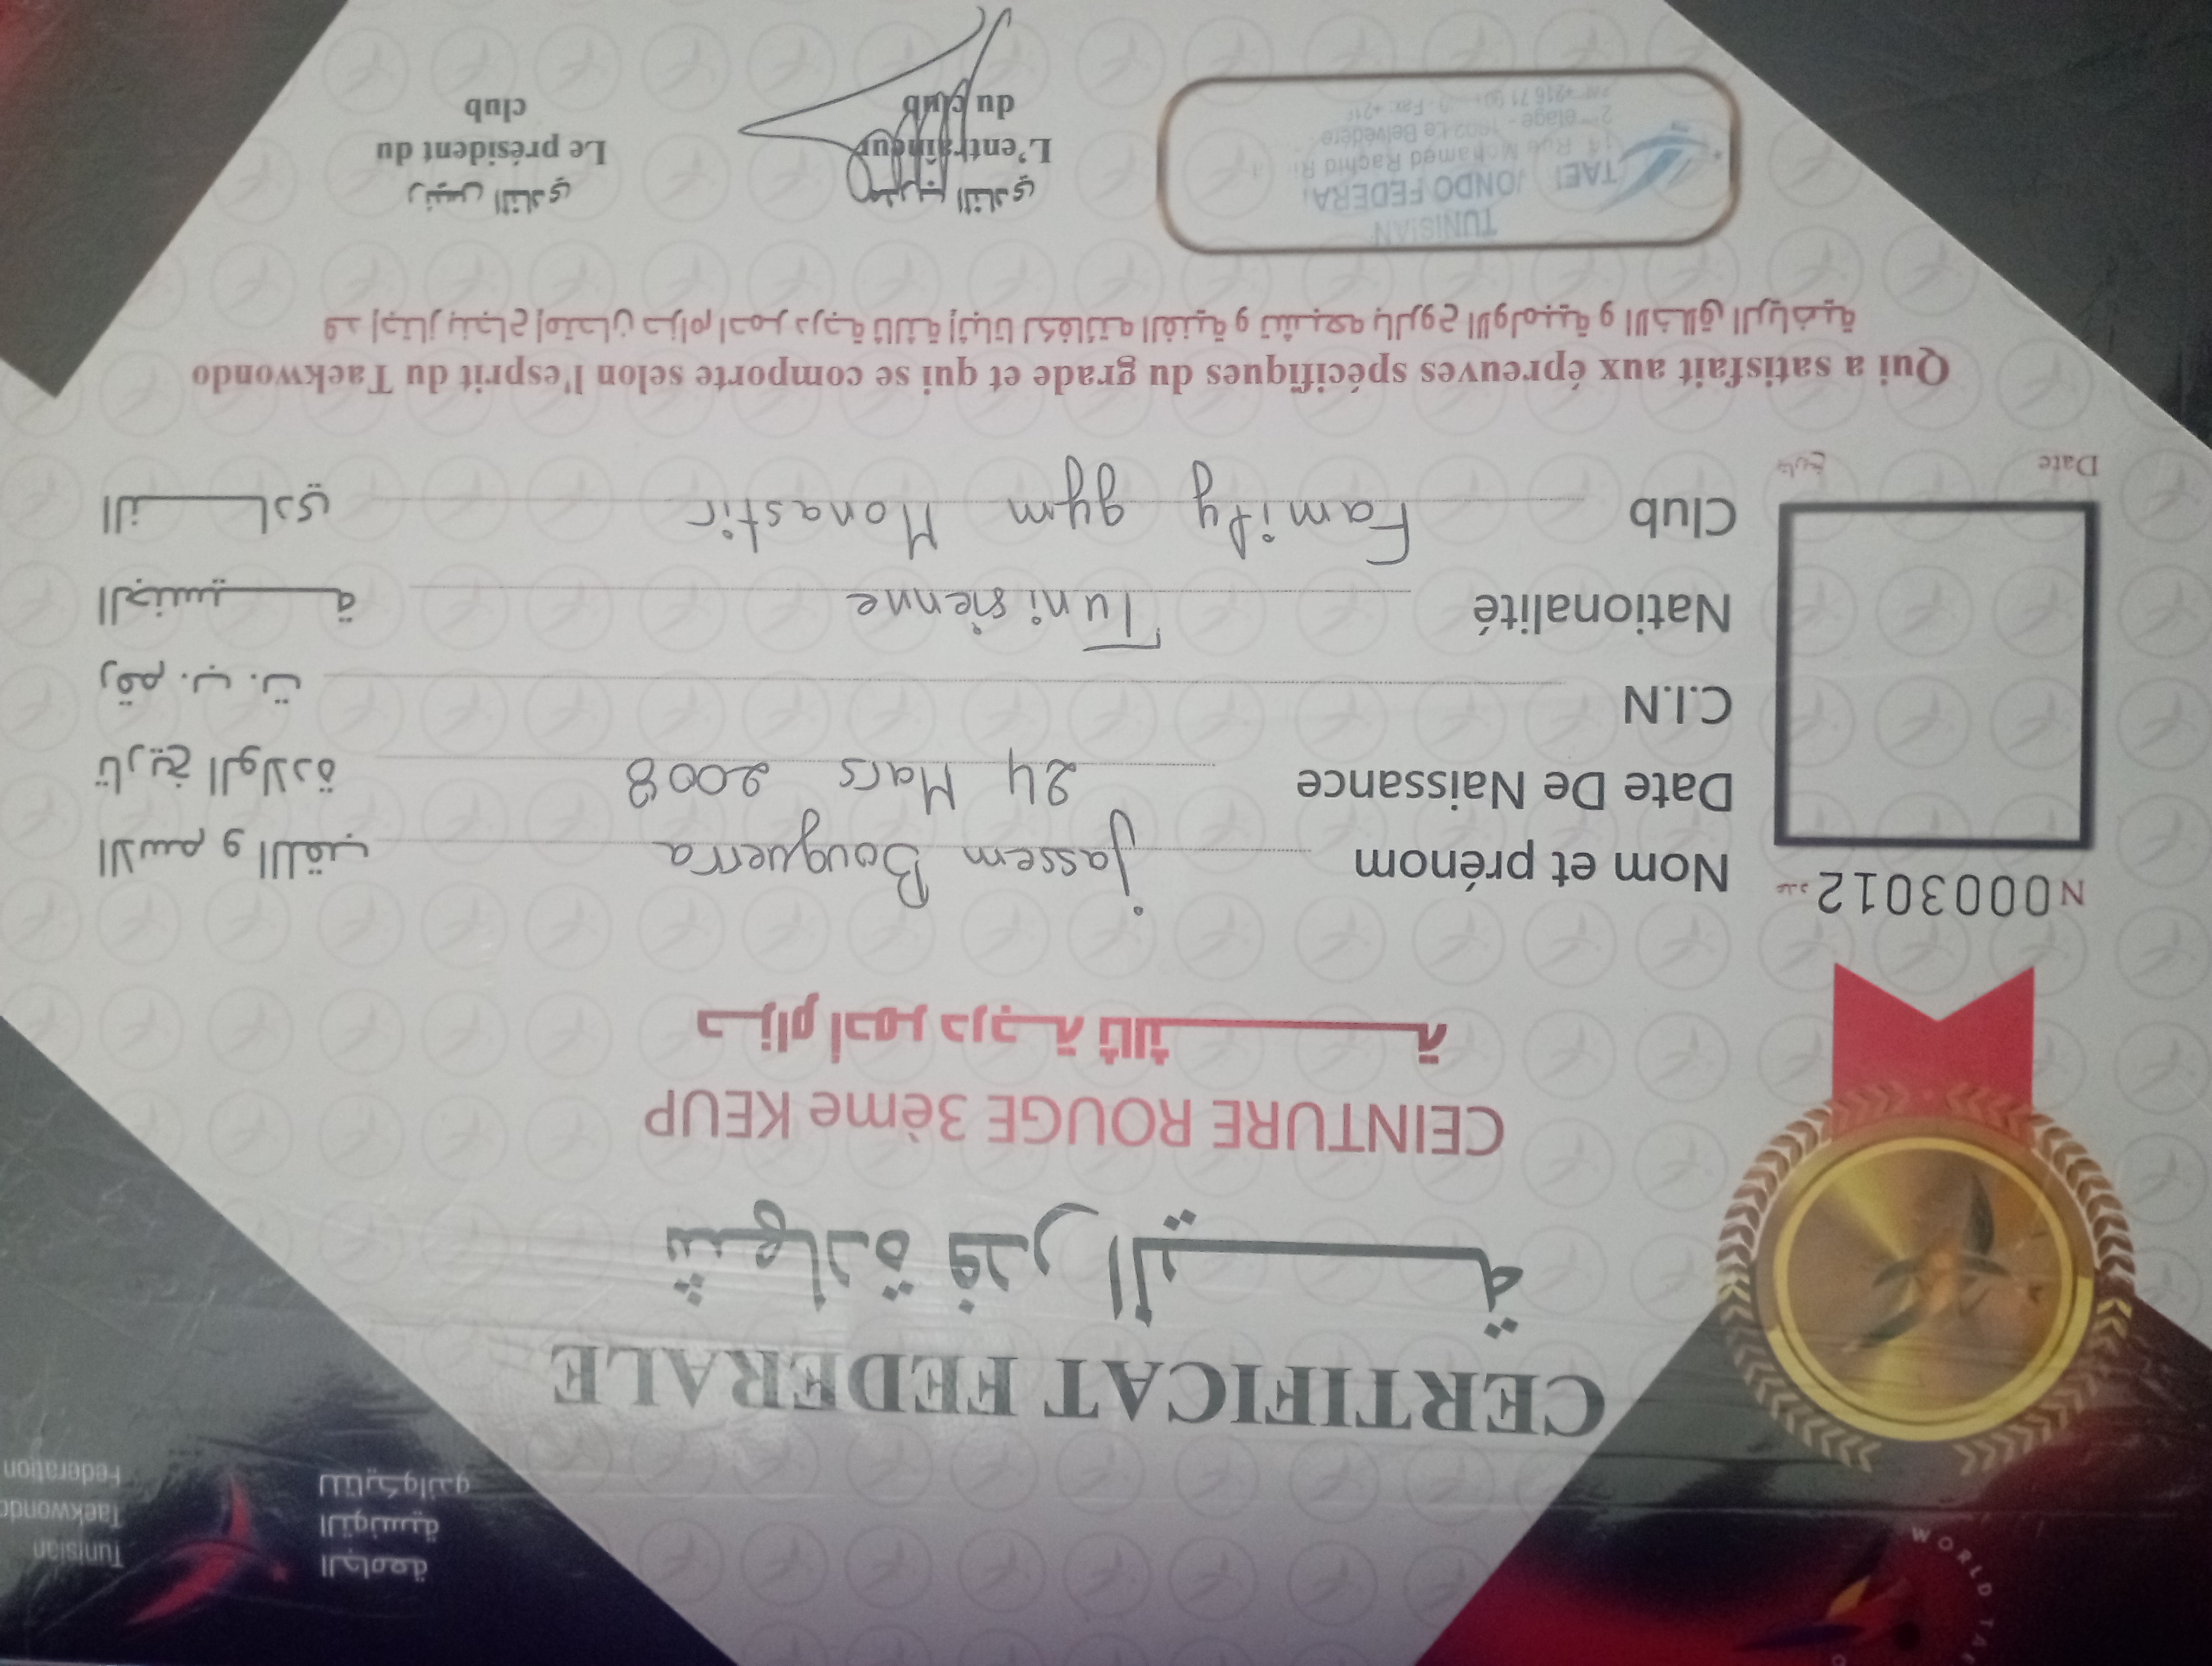 WORLD TAE
الجامعة
التونسية
للتايكواندو
Tunisian
Taekwondo
Federation
CERTIFICAT FEDERALE
شهادة فدراليـــــة
CEINTURE ROUGE 3ème KEUP
حـزام أحمر درجـة ثالثـــــــة
N 0003012 عدد
Nom et prénom jassem Bouguerra الاسم و اللقب
Date De Naissance 24 Mars 2008 تاريخ الولادة
C.I.N رقم ب. ت.
Nationalité Tunisienne الجنسيــــة
Club Family gym Monastir النــــادي
Date تاريخ
Qui a satisfait aux épreuves spécifiques du grade et qui se comporte selon l'esprit du Taekwondo
قد إجتاز بنجاح إمتحان حزام احمر درجة ثالثة إثباتا لكفائته الفنية و تشبعه بالروح الاولمبية و الاخلاق الرياضية
TUNISIAN
TAE ONDO FEDERA
Rue Mohamed Rachid Ri
2 étage - 1002 Le Belvédère
+216 71 Fax: +21
مدرب النادي
L'entraîneur
du club
رئيس النادي
Le président du
club